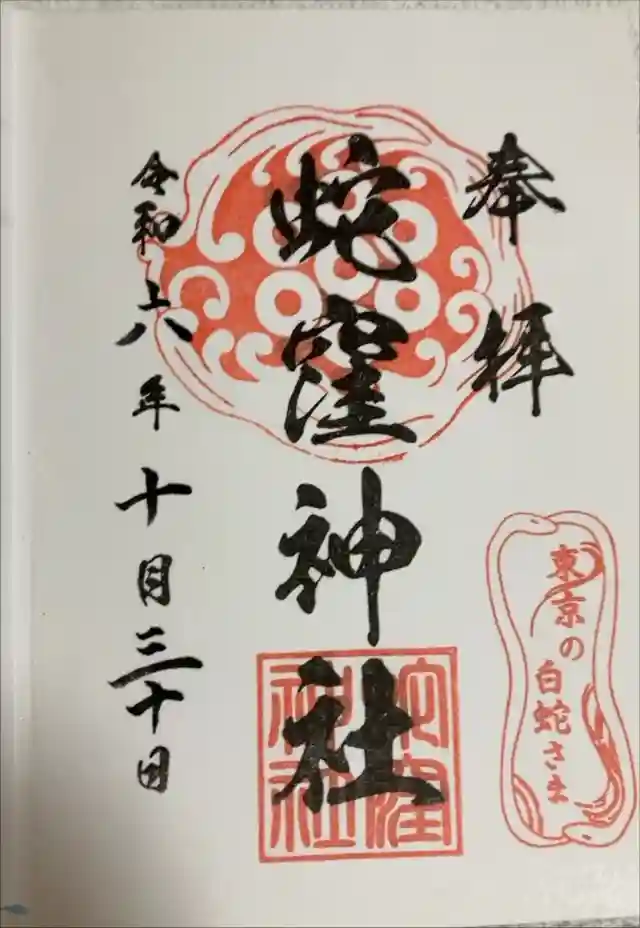 奉拝
蛇窪神社
蛇窪神社
令和六年十月三十日
東京の
白蛇さま